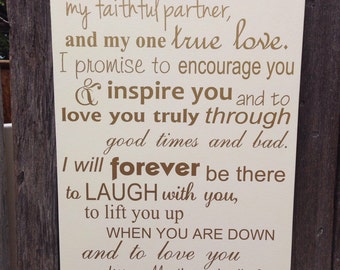 my faithful partner,
and my one true love.
I promise to encourage you
& inspire you and to
love you truly through
good times and bad.
I will forever be there
to LAUGH with you,
to lift you up
WHEN YOU ARE DOWN
and to love you